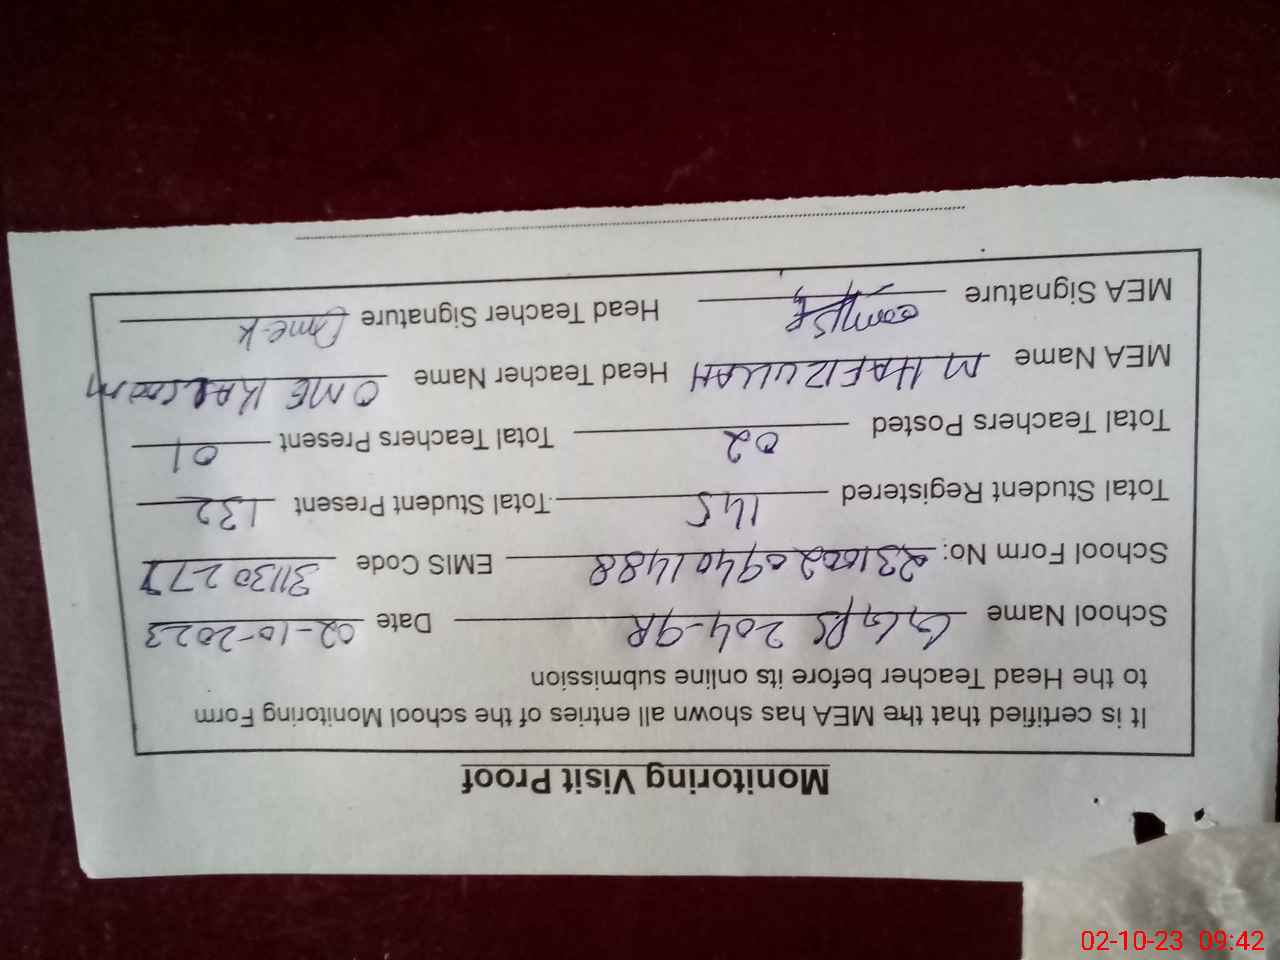 Monitoring Visit Proof
It is certified that the MEA has shown all entries of the school Monitoring Form
to the Head Teacher before its online submission
School Name GGPS 204-9R Date 02-10-2023
School Form No: 23100209401488 EMIS Code 31130277
Total Student Registered 145 Total Student Present 132
Total Teachers Posted 02 Total Teachers Present 01
MEA Name M HAFIZULLAH Head Teacher Name OME KALSOOM
MEA Signature Head Teacher Signature Ome-K
02-10-23 09:42